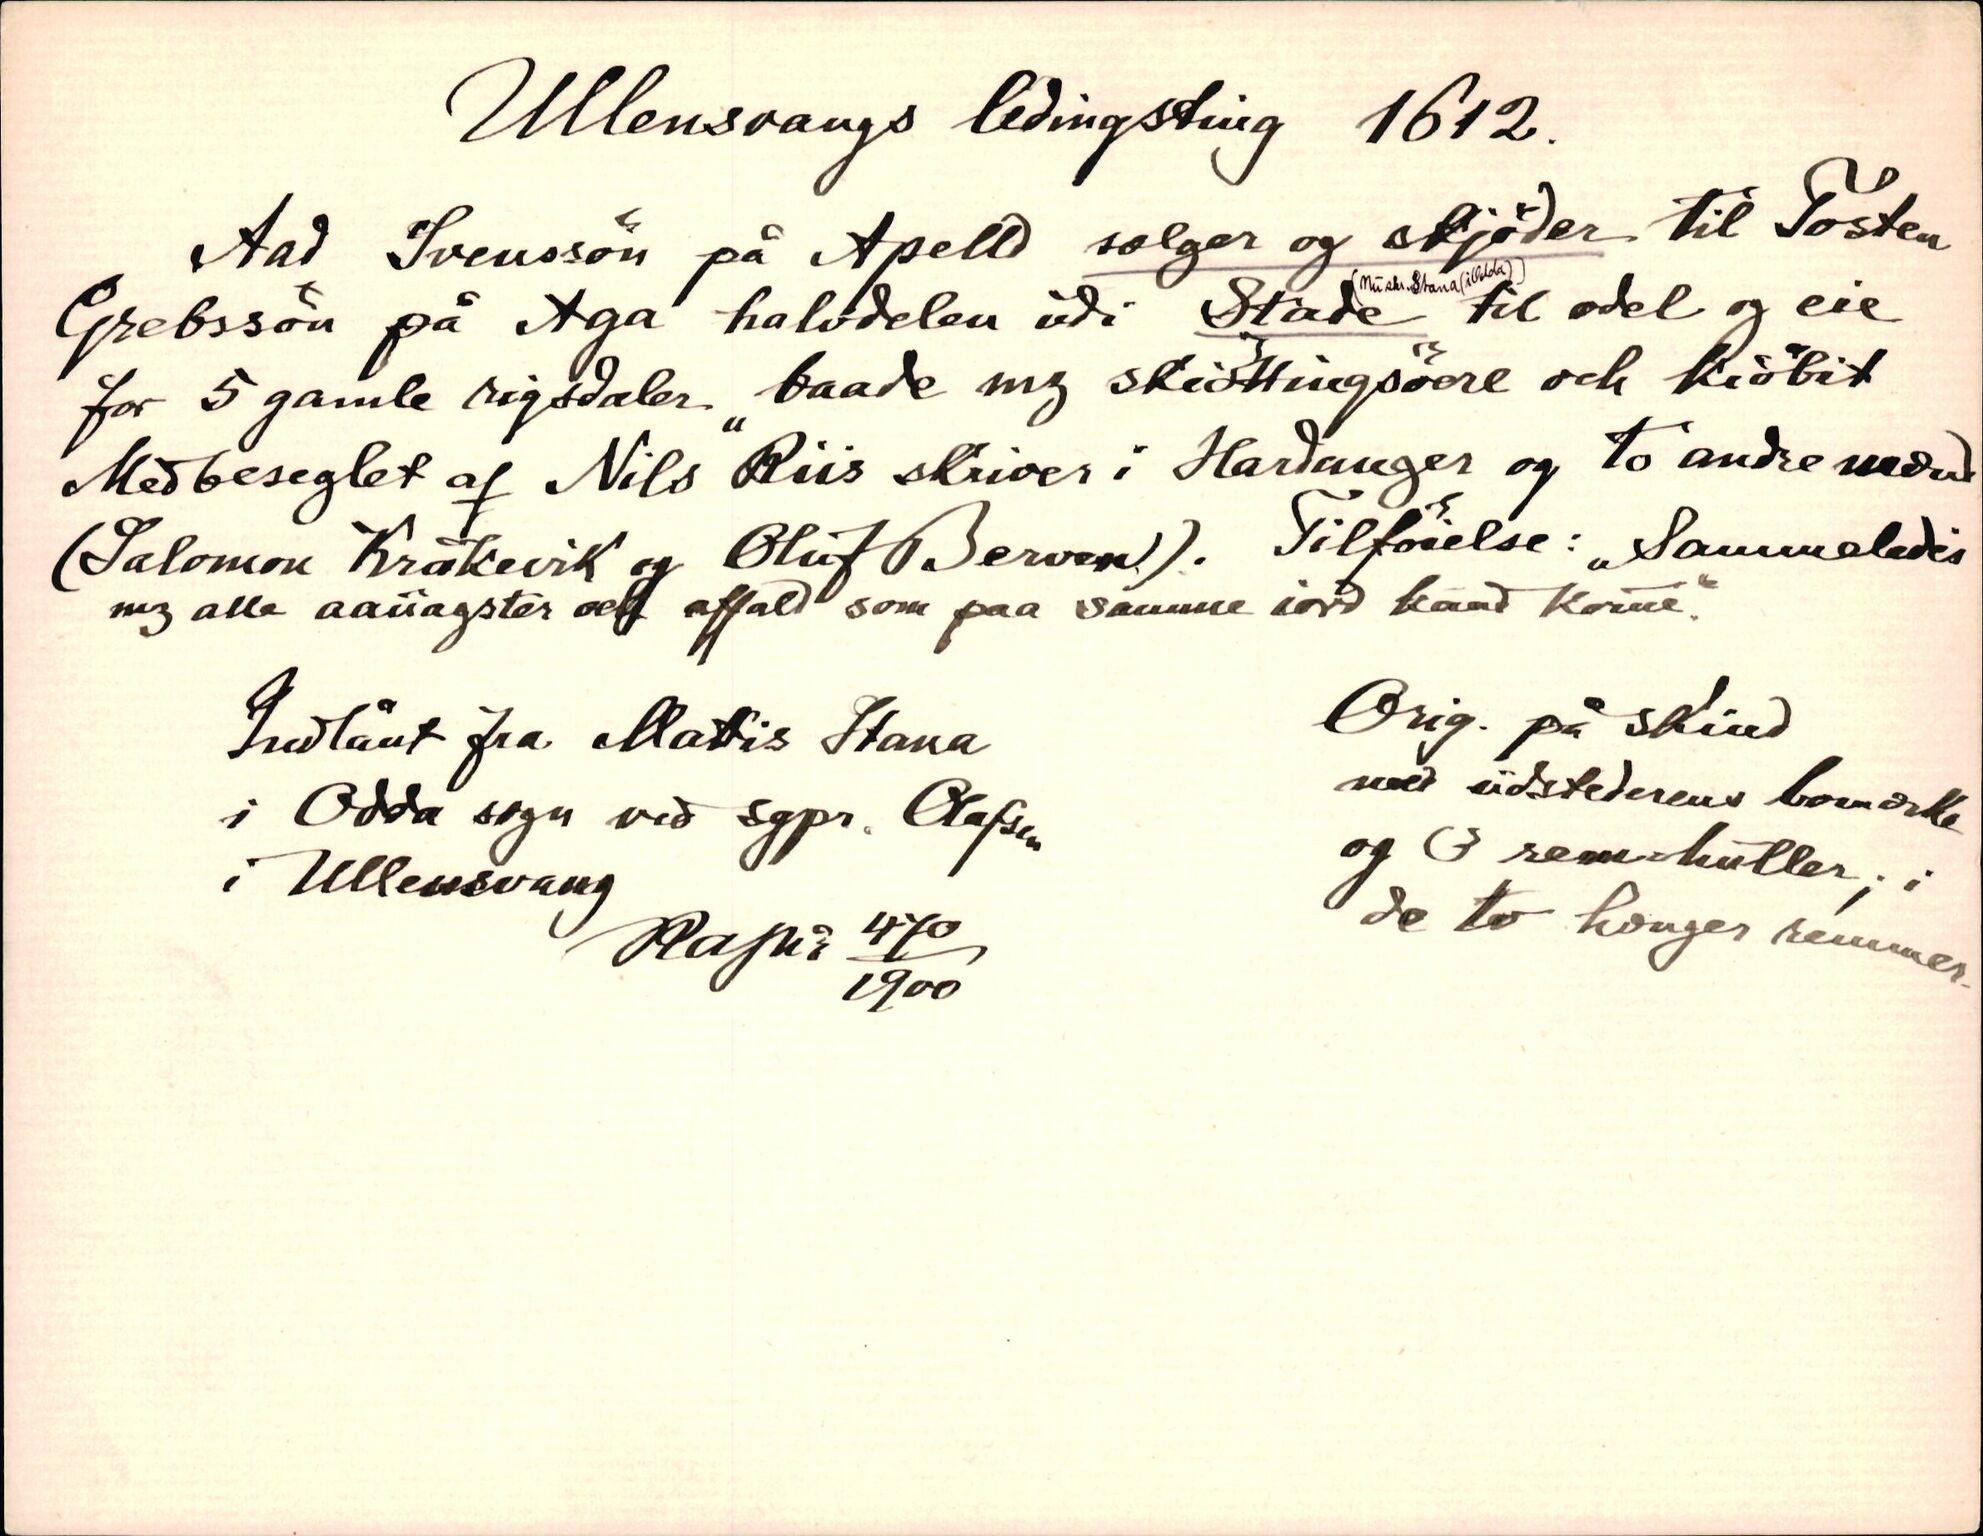 Ullensvangs ledingsting 1612.
Aad Svenssön på Apelld sælger og skjöder til Tosten
Grebssön på Aga halvdelen udi Stade (nu skr. Stana (i Odda)) til odel og eie
for 5 gamle rigsdaler „baade mz skiöttingsöere och kiöbit
Medbeseglet af Nils Riis skriver i Hardanger og to andre mænd
(Salomon Kråkevik og Oluf Berven). Tilföielse: „Sammeledis
mz alle aauagster och affald som paa samme iord kand kome“.
Indlånt fra Mattis Stana
i Odda sogn ved sgpr. Olafsen
i Ullensvang
4/10
1900
Orig. på skind
med udstederens bomærke
og 3 rem-huller; i
de to hænger remmer.